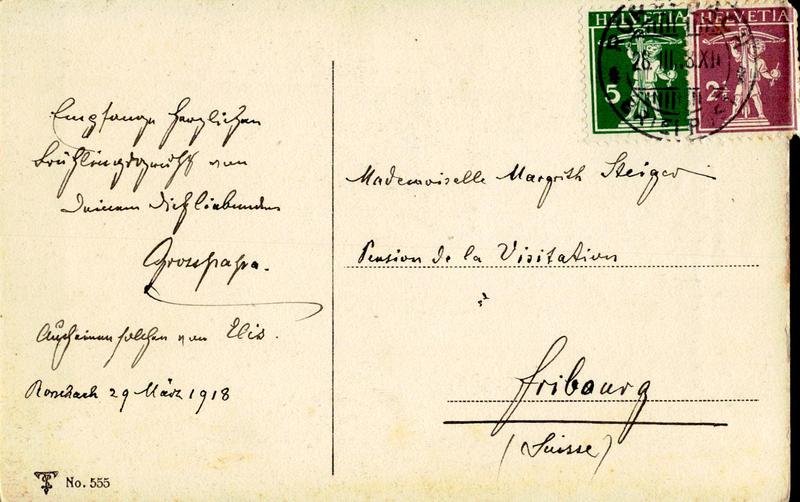 Empfange herzlichen
Frühlingsgruss von
Deinem Dich liebenden
Grosspapa.
Auch einen solchen von Elis.
Rorschach 29 März 1918
No. 555
HELVETIA
5
HELVETIA
2½
Mademoiselle Margrith Steiger
Pension de la Visitation
Fribourg
(Suisse)